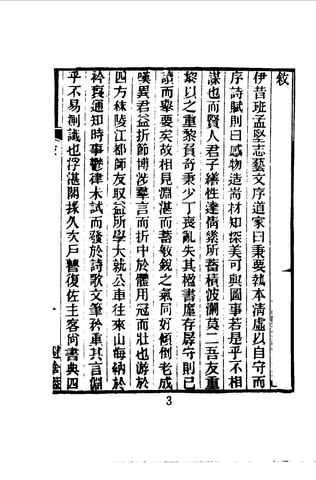 敘
伊昔班孟堅志藝文序道家曰秉要執本清虛以自守而
序詩賦則曰感物造耑材知深美可與圖事若是乎不相
謀也而賢人君子繕性達情業所蓄橫波瀾莫二吾友重
黎以之重黎負奇秉少丁喪亂失其楹書虛存羼守則已
讀而舉要矣故相見淵湛而蓄敏銳之氣同好傾倒老成
嘆異君益折節博涉羣言而折中於體用冠而壯也游於
四方秣陵江都師友取益所學大就公車往來山海納於
衿裒通知時事鬱律未試而發於詩歌文筆矜重其言淵
乎不易測識也浮湛閒掾久次戶曹復佐主客尚書典四
3